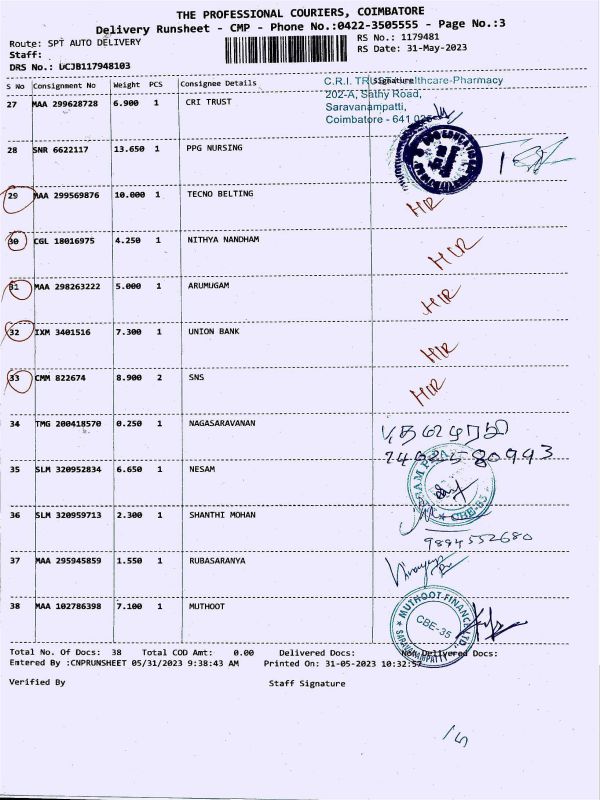 THE PROFESSIONAL COURIERS, COIMBATORE
Delivery Runsheet - CMP - Phone No.:0422-3505555 - Page No.:3
Route: SPT AUTO DELIVERY
RS No.: 1179481
Staff:
RS Date: 31-May-2023
DRS No.: UCJB117948103
S No Consignment No Weight PCS Consignee Details Signature
C.R.I. TRUST Healthcare-Pharmacy
202-A, Sathy Road,
Saravanampatti,
Coimbatore - 641 035
27 MAA 299628728 6.900 1 CRI TRUST
28 SNR 6622117 13.650 1 PPG NURSING
29 MAA 299569876 10.000 1 TECNO BELTING HIR
30 CGL 18016975 4.250 1 NITHYA NANDHAM HIR
31 MAA 298263222 5.000 1 ARUMUGAM HIR
32 IXM 3401516 7.300 1 UNION BANK HIR
33 CMM 822674 8.900 2 SNS HIR
34 TMG 200418570 0.250 1 NAGASARAVANAN
35 SLM 320952834 6.650 1 NESAM
CBE-35
36 SLM 320959713 2.300 1 SHANTHI MOHAN
9894552680
37 MAA 295945859 1.550 1 RUBASARANYA
38 MAA 102786398 7.100 1 MUTHOOT
MUTHOOT FINANCE LTD
CBE-35
SARAVANAMPATTY
Total No. Of Docs: 38 Total COD Amt: 0.00 Delivered Docs: Non Delivered Docs:
Entered By :CNPRUNSHEET 05/31/2023 9:38:43 AM Printed On: 31-05-2023 10:32:57
Verified By Staff Signature